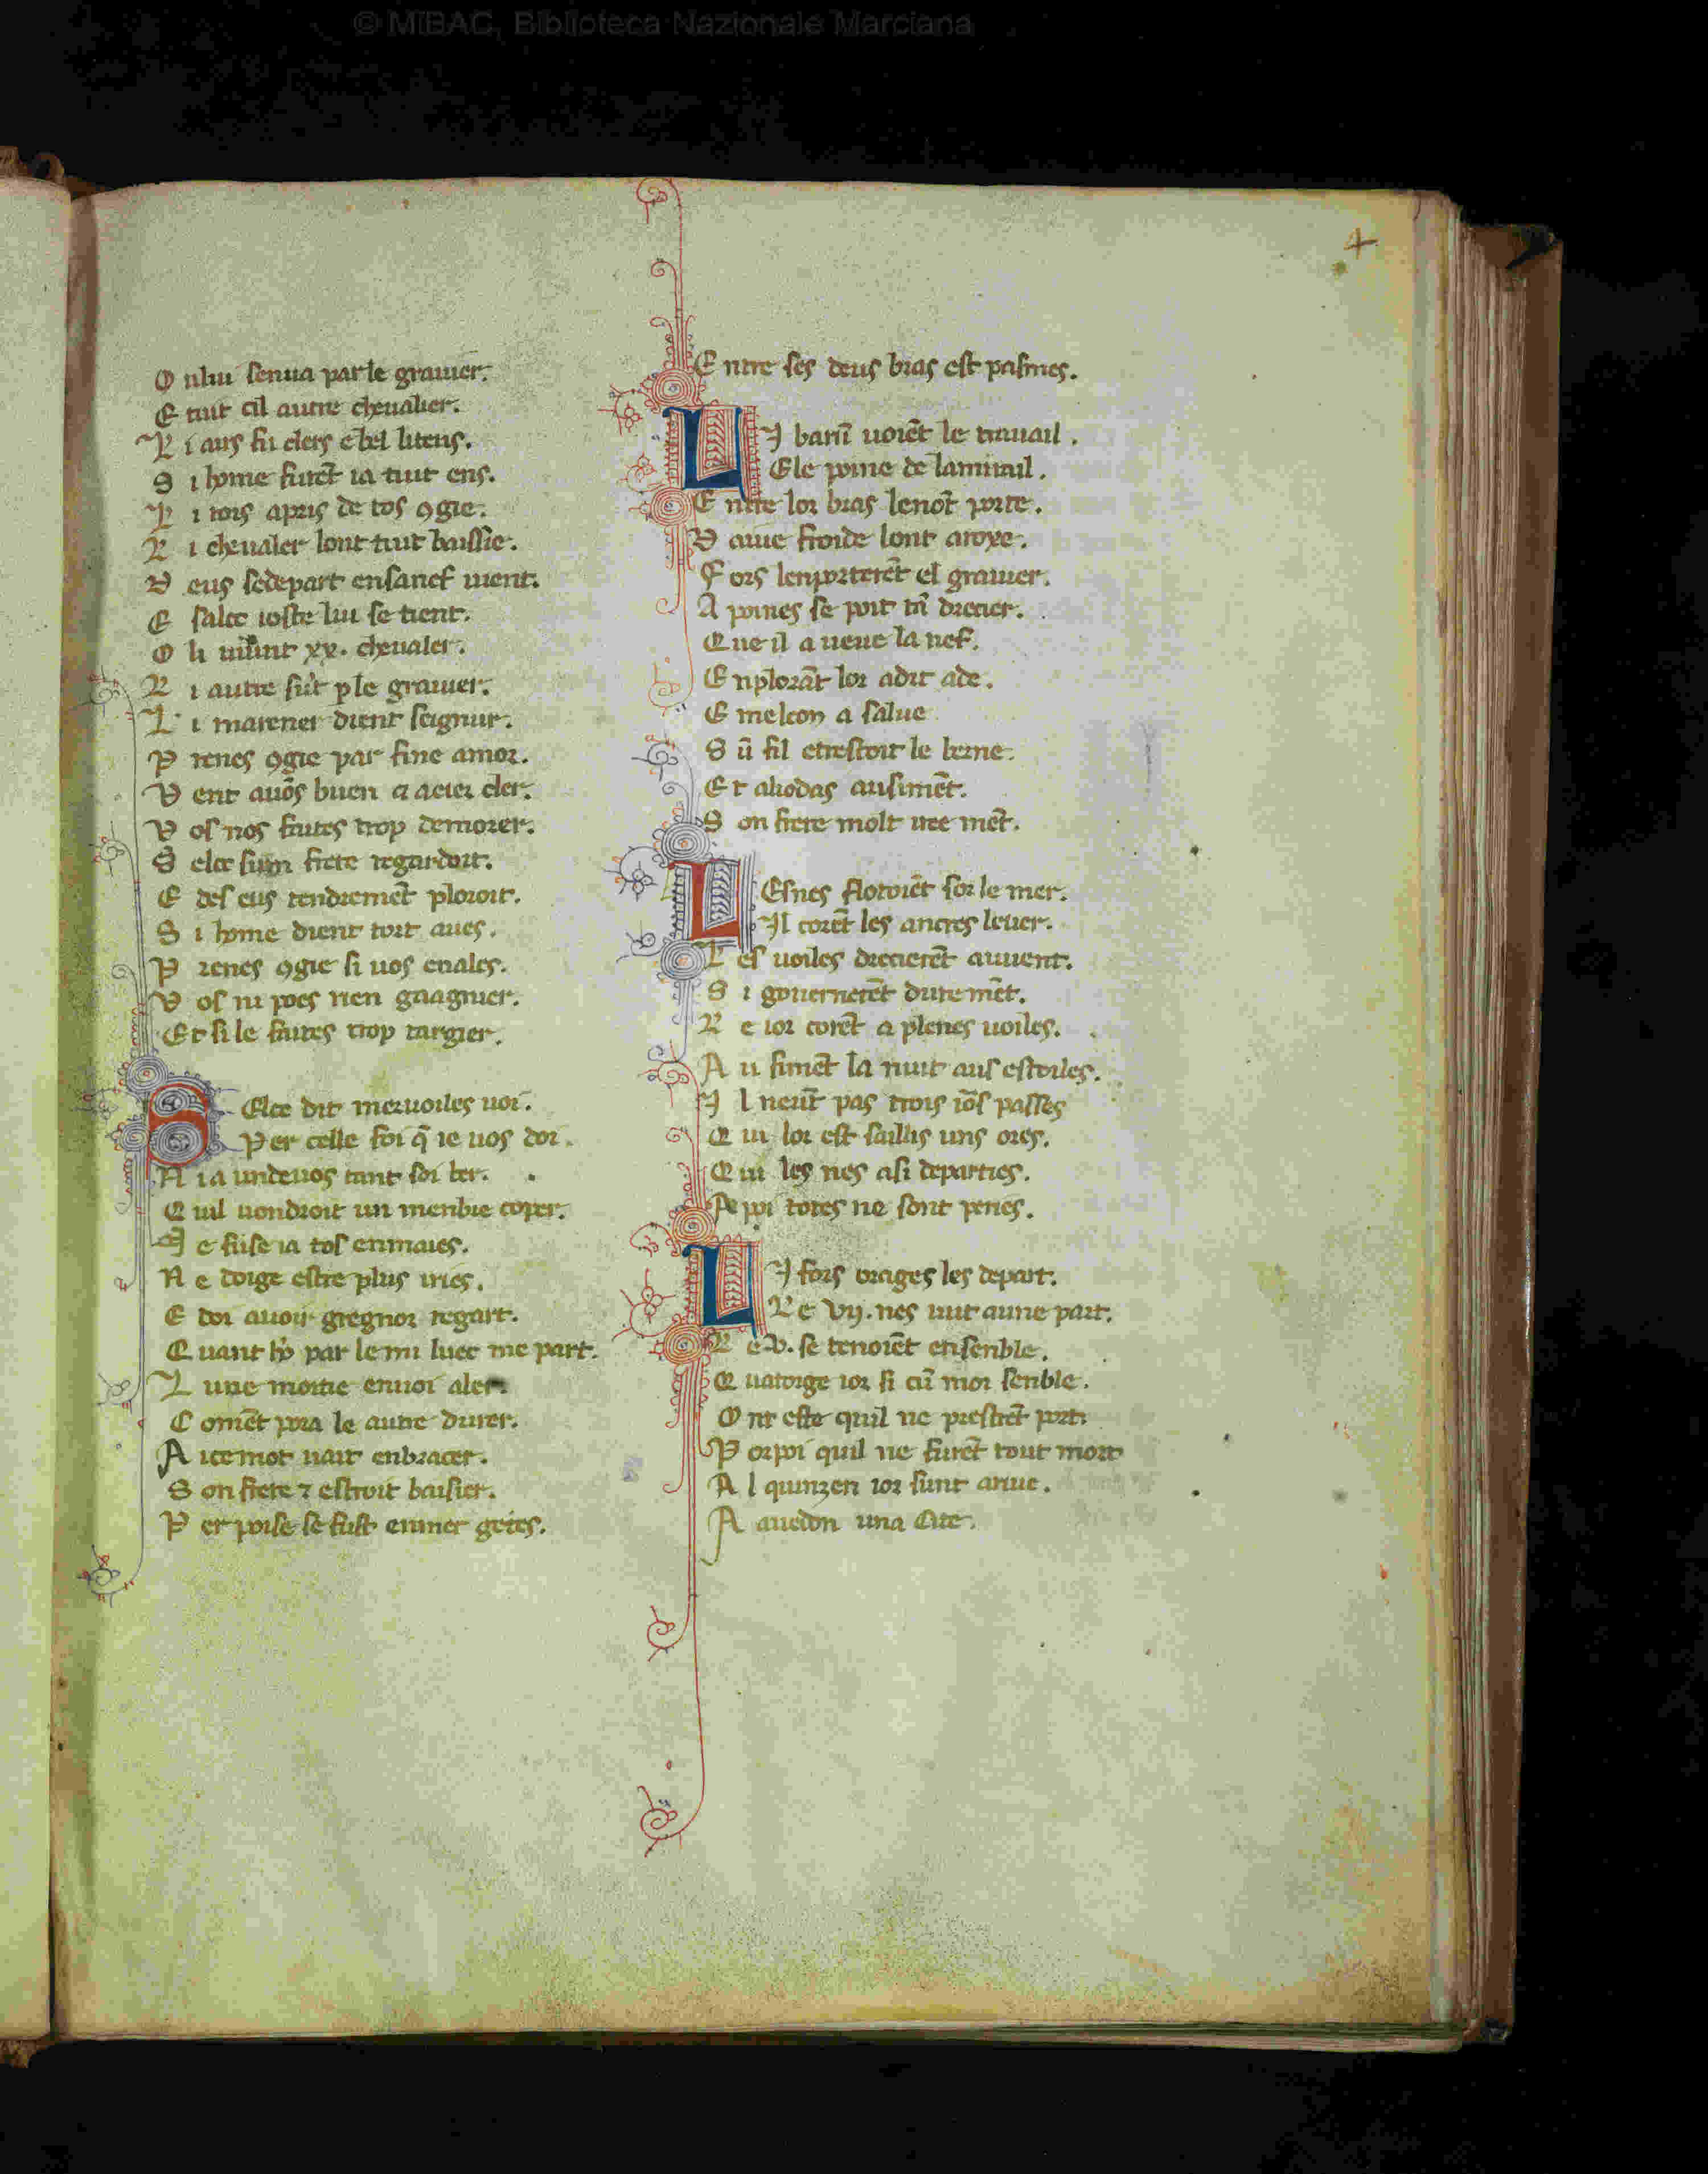 © MiBAC, Biblioteca Nazionale Marciana
4
O nlui senua par le grauier.
E tuit cil autre cheualier.
L i aus fu clers e bel litens.
S i home furēt ia tuit ens.
L i rois apris de tos ꝯgie.
L i cheualer lont tuit baissie.
D eus se depart en sa nef uient.
E salce ioste lui se tient.
O li uindrent xx. cheualer.
L i autre sūt ple grauier.
L i marener dient seignur.
P renes ꝯgie par fine amor.
V ent auōs buen a aeier cler.
V os nos faites trop demorer.
S elce sum frere regardoit.
E des eus tendremēt ploroit.
S i home dient tort aues.
P renes ꝯgie si uos enales.
V os ni poes rien gaagnier.
Et si le faites trop targier.
S Elce dit meruoiles uoi.
Per celle foi q̄ ie uos doi.
N ia un de uos tant soi ber.
Q uil uondroit un menbre coper.
J e fuse ia tos enmaies.
N e doige estre plus iries.
E doi auoir gregnor regart.
Q uant hō par le mi luec me part.
L une moitie en uoi aler.
C omēt pora le autre durer.
A ice mot uait enbracer.
S on frere ⁊ estroit baisier.
P er poi se se fust en mer getes.
E ntre ses deus bras est pasmes.
L J barū uoiēt le trauail.
E le poine de lamirail.
E ntre lor bras lenōt porte.
D aiue froide lont aroxe.
F ors lenporterēt el grauier.
A poines se poit tn̄ drecier.
Q ue il a ueue la nef.
E nplorāt lor a dit ade.
E melcon a salue
S ū fil et restoit le berne.
E t aliodas ausimēt.
S on frere molt uree mēt.
L Es nes flotoiēt sor le mer.
Il corēt les ancres leuer.
L es uoiles drecierēt au uent.
S i gouernerēt duremēt.
L e ior corēt a plenes uoiles.
A u simēt la nuit aus estoiles.
J l neūt pas trois iōs passes
Q ui lor est saillis uns ores.
Q ui les nes a si departies.
A poi totes ne sont peries.
L J fors orages les depart.
Le vij. nes uut a une part.
L e .v. se tenoiēt ensenble.
Q uatorge ior si cū moi senble.
O nt este quil ne prestrēt port.
P or poi quil ne furēt tout mort
A l quinzen ior sunt ariue.
A auedon una Cite.